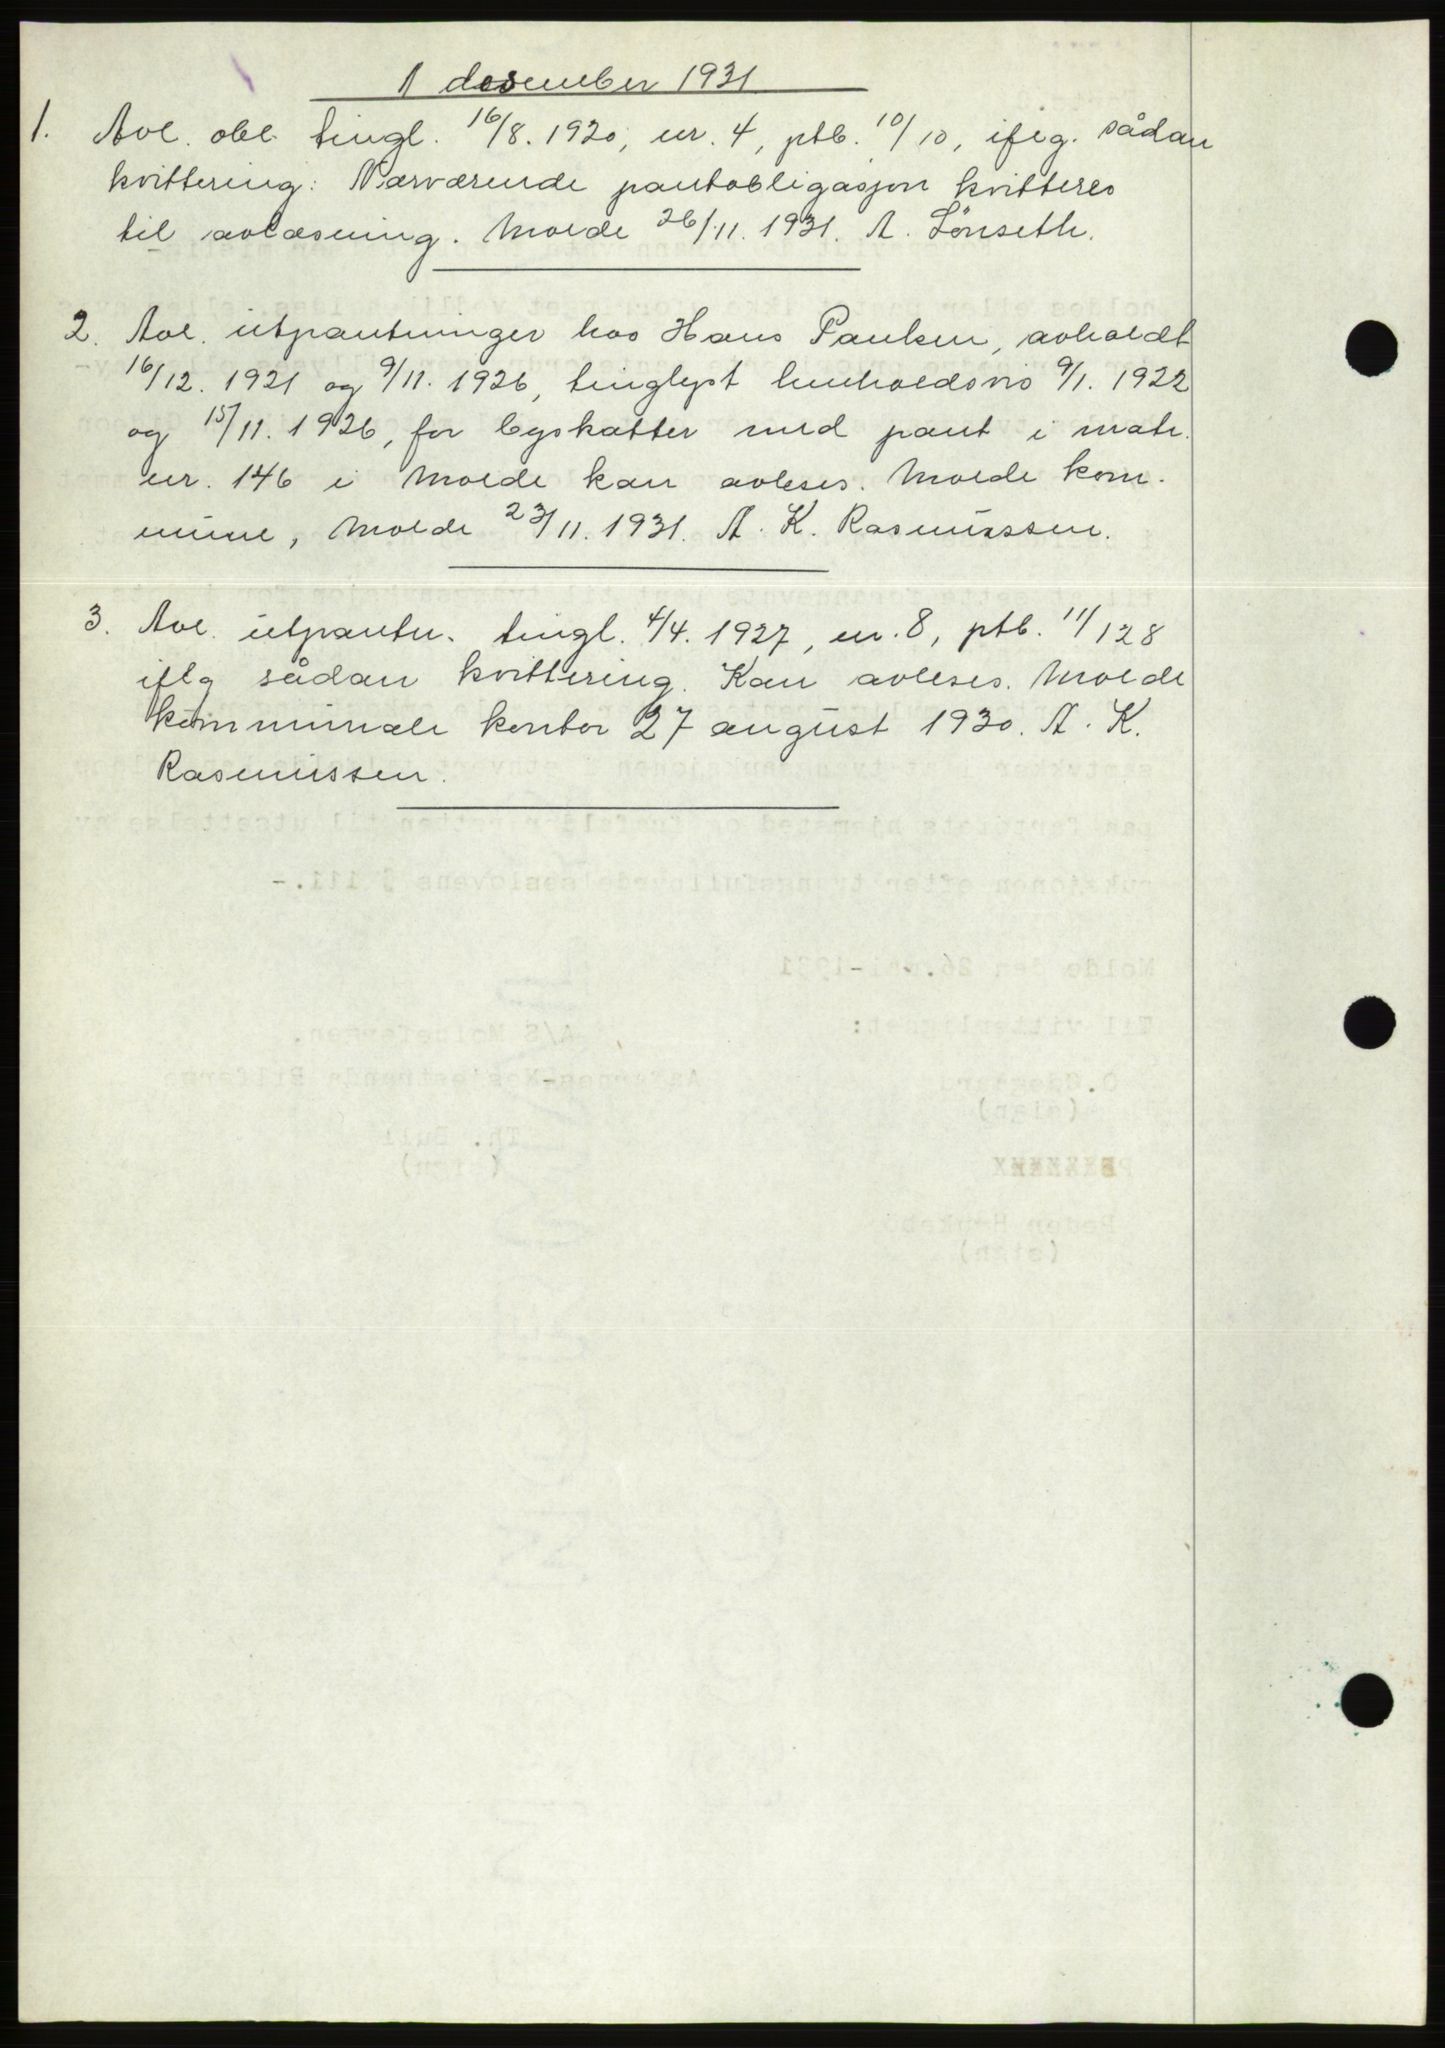 1 desember 1931
1. Avl. obl. tingl. 16/8. 1920, nr. 4, ptb. 10/10, iflg. sådan
kvittering: Nærværende pantobligasjon kvitteres
til avlæsning. Molde 26/11. 1931. A. Lönseth.
2. Avl. utpantninger hos Hans Paulsen, avholdt
16/12. 1921 og 9/11. 1926, tinglyst henholdsvis 9/1. 1922
og 15/11. 1926, for byskatter med pant i matr.
nr. 146 i Molde kan avleses. Molde kom-
mune, Molde 23/11. 1931. A. K. Rasmussen.
3. Avl. utpantn. tingl. 4/4. 1927, nr. 8, ptb. 11/128
iflg sådan kvittering. Kan avleses. Molde
kommunale kontor 27 august 1930. A. K.
Rasmussen.